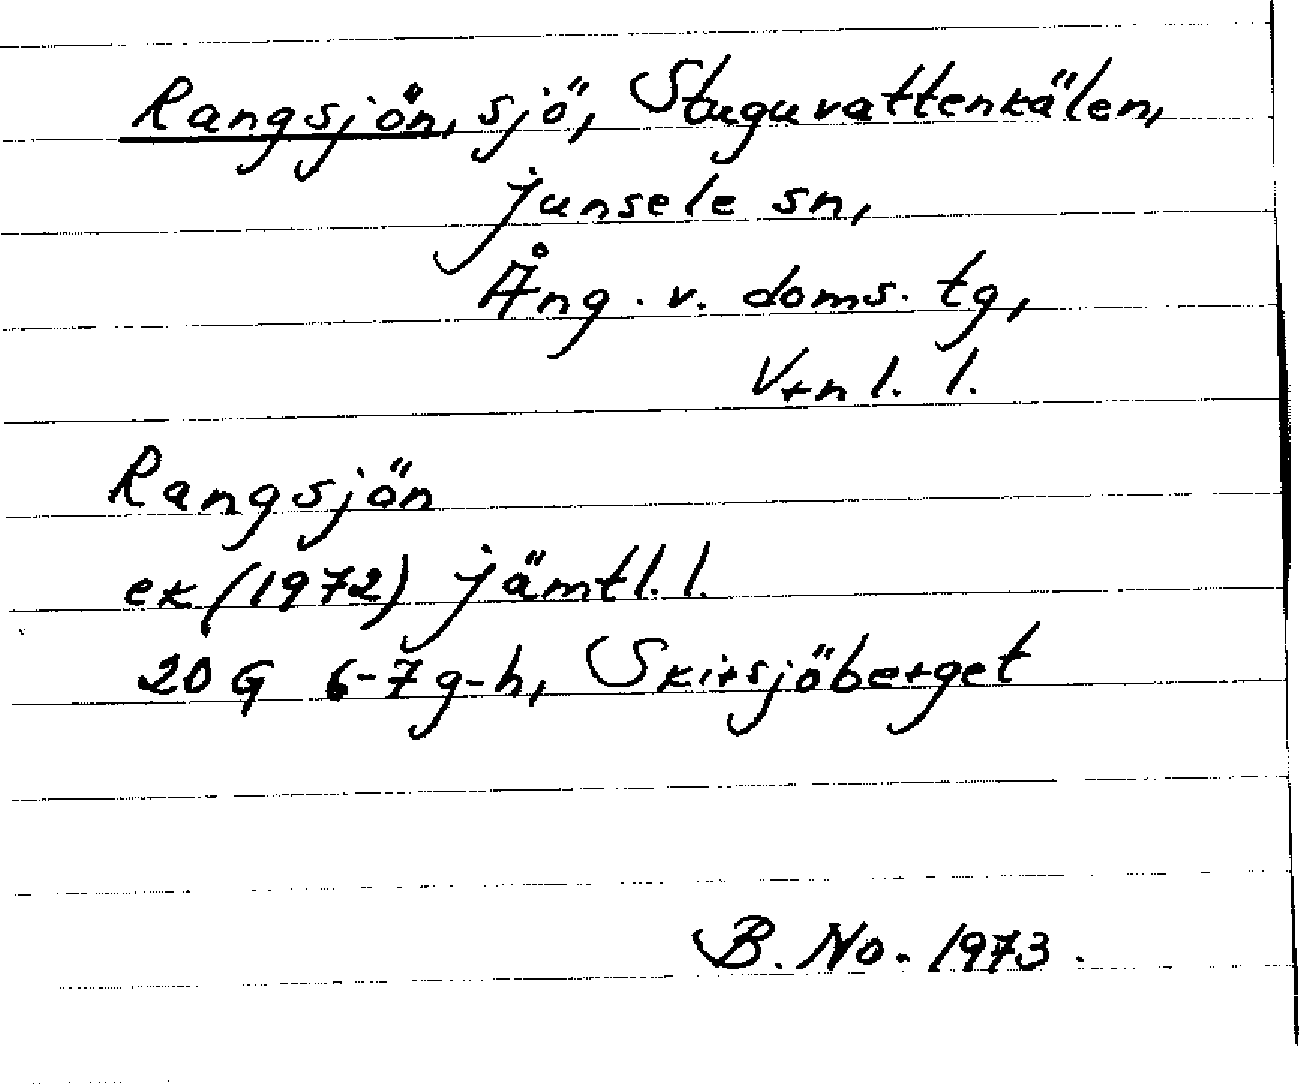 Rangsjön, sjö, Stuguvattenkälen,
Junsele sn,
Ång. v. doms. tg,
V:rnl. l.
Rangsjön
ek (1972) Jämtl. l.
20 G 6-7g-h, Skirsjöberget
B. No. 1973.